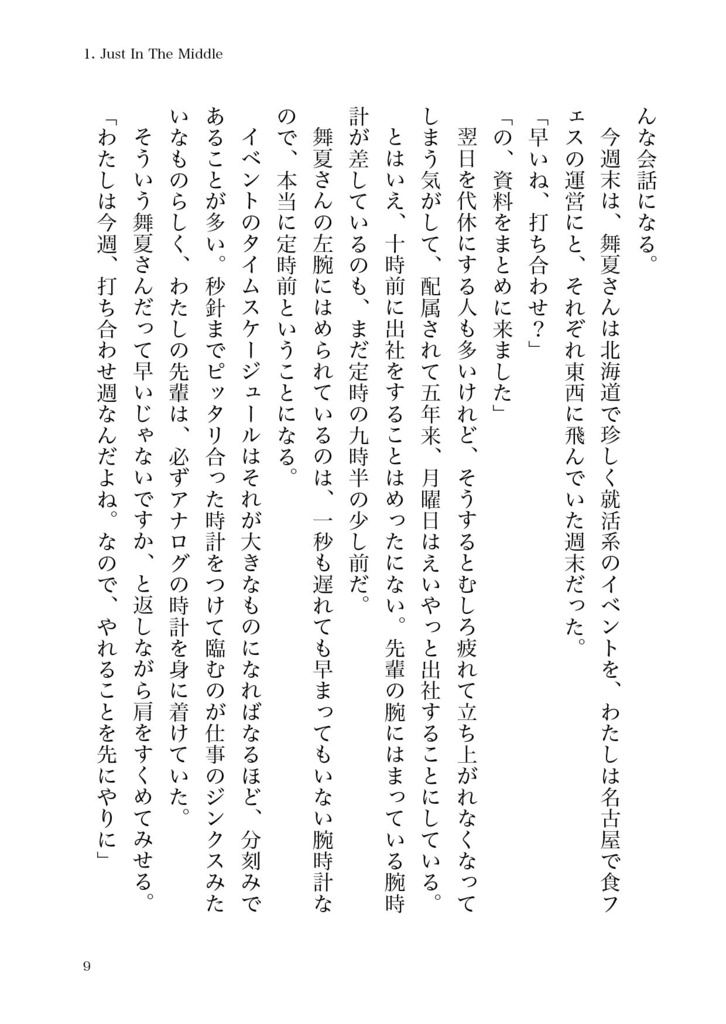 1. Just In The Middle
んな会話になる。
　今週末は、舞夏さんは北海道で珍しく就活系のイベントを、わたしは名古屋で食フ
ェスの運営にと、それぞれ東西に飛んでいた週末だった。
「早いね、打ち合わせ？」
「の、資料をまとめに来ました」
　翌日を代休にする人も多いけれど、そうするとむしろ疲れて立ち上がれなくなって
しまう気がして、配属されて五年来、月曜日はえいやっと出社することにしている。
　とはいえ、十時前に出社をすることはめったにない。先輩の腕にはまっている腕時
計が差しているのも、まだ定時の九時半の少し前だ。
　舞夏さんの左腕にはめられているのは、一秒も遅れても早まってもいない腕時計な
ので、本当に定時前ということになる。
　イベントのタイムスケージュールはそれが大きなものになればなるほど、分刻みで
あることが多い。秒針までピッタリ合った時計をつけて臨むのが仕事のジンクスみた
いなものらしく、わたしの先輩は、必ずアナログの時計を身に着けていた。
　そういう舞夏さんだって早いじゃないですか、と返しながら肩をすくめてみせる。
「わたしは今週、打ち合わせ週なんだよね。なので、やれることを先にやりに」
9